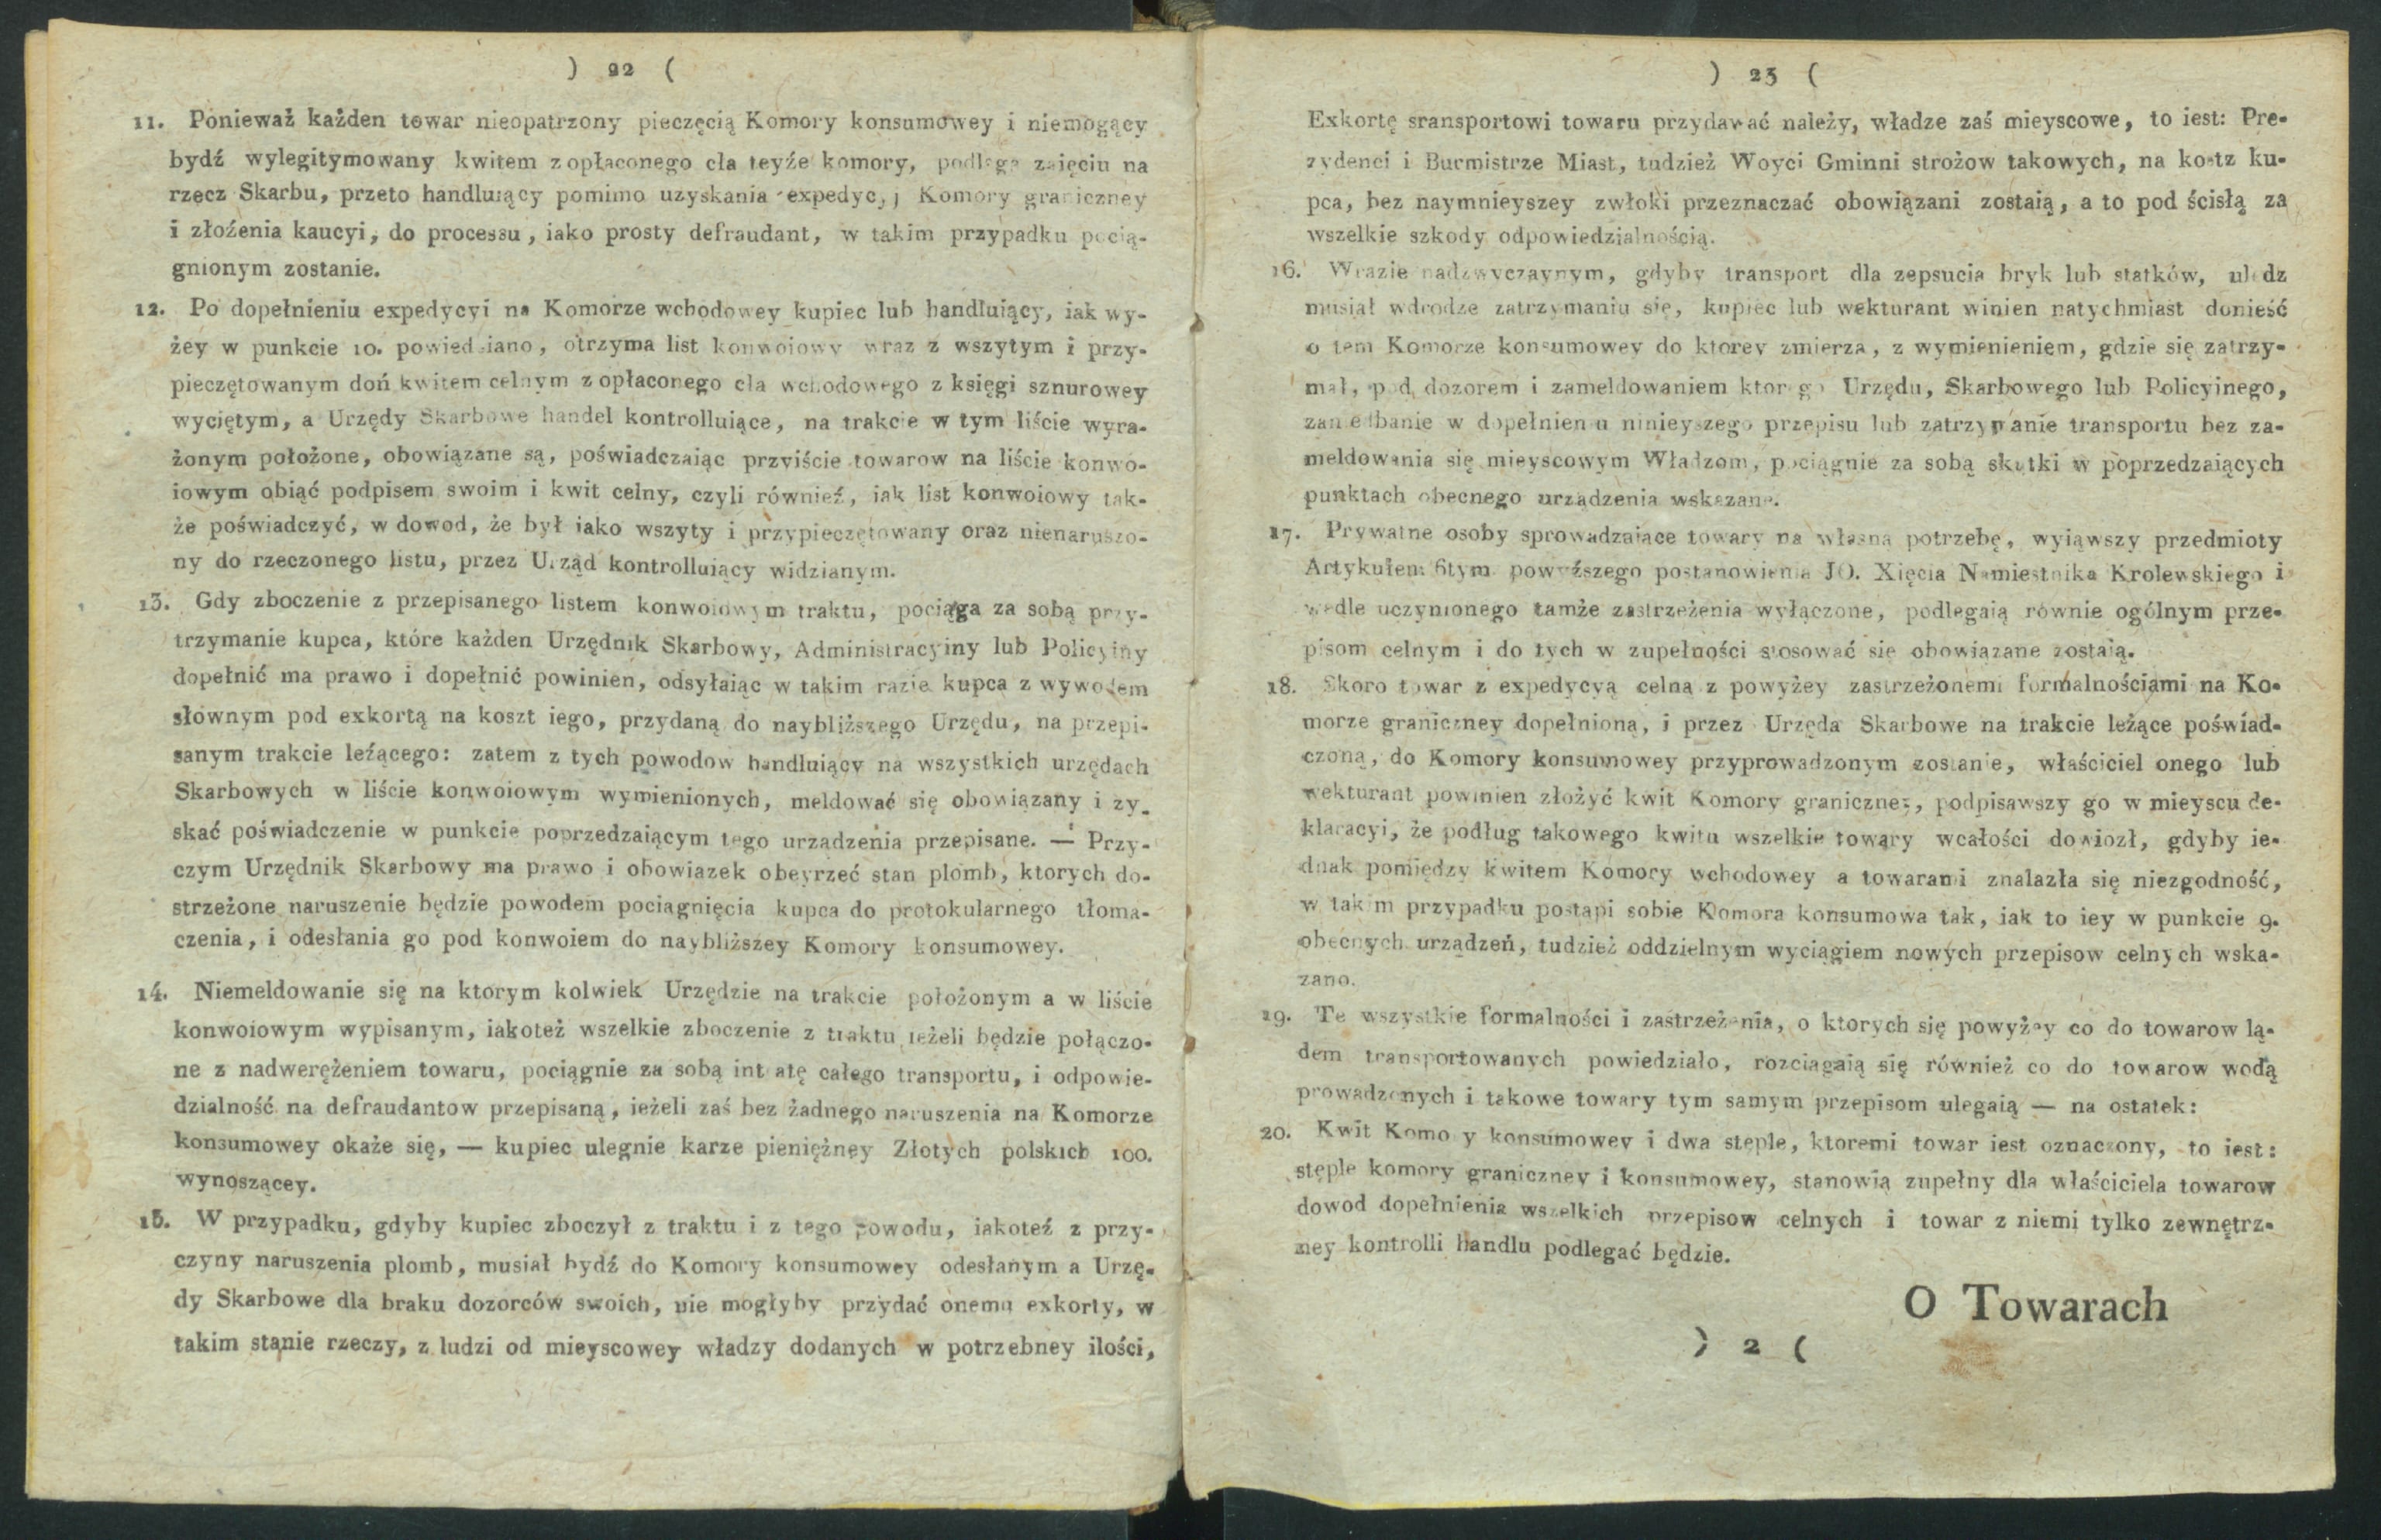 ) 22 (
11. Ponieważ każden towar nieopatrzony pieczęcią Komory konsumowey i niemogący
bydź wylegitymowany kwitem z opłaconego cła teyże komory, podlega zaięciu na
rzecz Skarbu, przeto handluiący pomimo uzyskania expedycyj Komory graniczney
i złożenia kaucyi, do processu, iako prosty defraudant, w takim przypadku pocią-
gnionym zostanie.
12. Po dopełnieniu expedycyi na Komorze wchodowey kupiec lub handluiący, iak wy-
żey w punkcie 10. powiedziano, otrzyma list konwoiowy wraz z wszytym i przy-
pieczętowanym doń kwitem celnym z opłaconego cła wchodowego z księgi sznurowey
wyciętym, a Urzędy Skarbowe handel kontrolluiące, na trakcie w tym liście wyra-
żonym położone, obowiązane są, poświadczaiąc przyiście towarow na liście konwo-
iowym obiąć podpisem swoim i kwit celny, czyli również, iak list konwoiowy tak-
że poświadczyć, w dowod, że był iako wszyty i przypieczętowany oraz nienaruszo-
ny do rzeczonego listu, przez Urząd kontrolluiący widzianym.
13. Gdy zboczenie z przepisanego listem konwoiowym traktu, pociąga za sobą przy-
trzymanie kupca, które każden Urzędnik Skarbowy, Administracyiny lub Policyiny
dopełnić ma prawo i dopełnić powinien, odsyłaiąc w takim razie kupca z wywodem
słownym pod exkortą na koszt iego, przydaną do naybliższego Urzędu, na przepi-
sanym trakcie leżącego: zatem z tych powodow handluiący na wszystkich urzędach
Skarbowych w liście konwoiowym wymienionych, meldować się obowiązany i zy-
skać poświadczenie w punkcie poprzedzaiącym tego urządzenia przepisane. — Przy-
czym Urzędnik Skarbowy ma prawo i obowiazek obeyrzeć stan plomb, ktorych do-
strzeżone naruszenie będzie powodem pociagnięcia kupca do protokularnego tłoma-
czenia, i odesłania go pod konwoiem do naybliższey Komory konsumowey.
14. Niemeldowanie się na ktorym kolwiek Urzędzie na trakcie położonym a w liście
konwoiowym wypisanym, iakoteż wszelkie zboczenie z traktu ieżeli będzie połączo-
ne z nadwerężeniem towaru, pociągnie za sobą intratę całego transportu, i odpowie-
dzialność na defraudantow przepisaną, ieżeli zaś bez żadnego naruszenia na Komorze
konsumowey okaże się, — kupiec ulegnie karze pieniężney Złotych polskich 100.
wynoszącey.
15. W przypadku, gdyby kupiec zboczył z traktu i z tego powodu, iakoteż z przy-
czyny naruszenia plomb, musiał bydź do Komory konsumowey odesłanym a Urzę-
dy Skarbowe dla braku dozorców swoich, nie mogłyby przydać onemu exkorty, w
takim stanie rzeczy, z ludzi od mieyscowey władzy dodanych w potrzebney ilości,
) 23 (
Exkortę sransportowi towaru przydawać należy, władze zaś mieyscowe, to iest: Pre-
zydenci i Burmistrze Miast, tudzież Woyci Gminni strożow takowych, na kostz ku-
pca, bez naymnieyszey zwłoki przeznaczać obowiązani zostaią, a to pod ścisłą za
wszelkie szkody odpowiedzialnością.
16. Wrazie nadzwyczaynym, gdyby transport dla zepsucia bryk lub statków, uledz
musiał wdrodze zatrzymaniu się, kupiec lub wekturant winien natychmiast donieść
o tem Komorze konsumowey do ktorey zmierza, z wymienieniem, gdzie się zatrzy-
mał, pod dozorem i zameldowaniem ktorego Urzędu, Skarbowego lub Policyinego,
zaniedbanie w dopełnieniu ninieyszego przepisu lub zatrzymanie transportu bez za-
meldowania się mieyscowym Władzom, pociągnie za sobą skutki w poprzedzaiących
punktach obecnego urządzenia wskazane.
17. Prywatne osoby sprowadzaiące towary na własną potrzebę, wyiąwszy przedmioty
Artykułem 6tym powyższego postanowienia JO. Xięcia Namiestnika Krolewskiego i
wedle uczynionego tamże zastrzeżenia wyłączone, podlegaią równie ogólnym prze-
pisom celnym i do tych w zupełności stosować się obowiązane zostaią.
18. Skoro towar z expedycyą celną z powyżey zastrzeżonemi formalnościami na Ko-
morze graniczney dopełnioną, i przez Urzęda Skarbowe na trakcie leżące poświad-
czoną, do Komory konsumowey przyprowadzonym zostanie, właściciel onego lub
wekturant powinien złożyć kwit Komory graniczney, podpisawszy go w mieyscu de-
klaracyi, że podług takowego kwitu wszelkie towary wcałości dowiozł, gdyby ie-
dnak pomiędzy kwitem Komory wchodowey a towarami znalazła się niezgodność,
w takim przypadku postąpi sobie Komora konsumowa tak, iak to iey w punkcie 9.
obecnych urządzeń, tudzież oddzielnym wyciągiem nowych przepisow celnych wska-
zano.
19. Te wszystkie formalności i zastrzeżenia, o ktorych się powyżey co do towarow lą-
dem transportowanych powiedziało, rozciągaią się również co do towarow wodą
prowadzonych i takowe towary tym samym przepisom ulegaią — na ostatek:
20. Kwit Komory konsumowey i dwa stęple, ktoremi towar iest oznaczony, to iest:
stęple komory graniczney i konsumowey, stanowią zupełny dla właściciela towarow
dowod dopełnienia wszelkich przepisow celnych i towar z niemi tylko zewnętrz-
ney kontrolli handlu podlegać będzie.
O Towarach
) 2 (